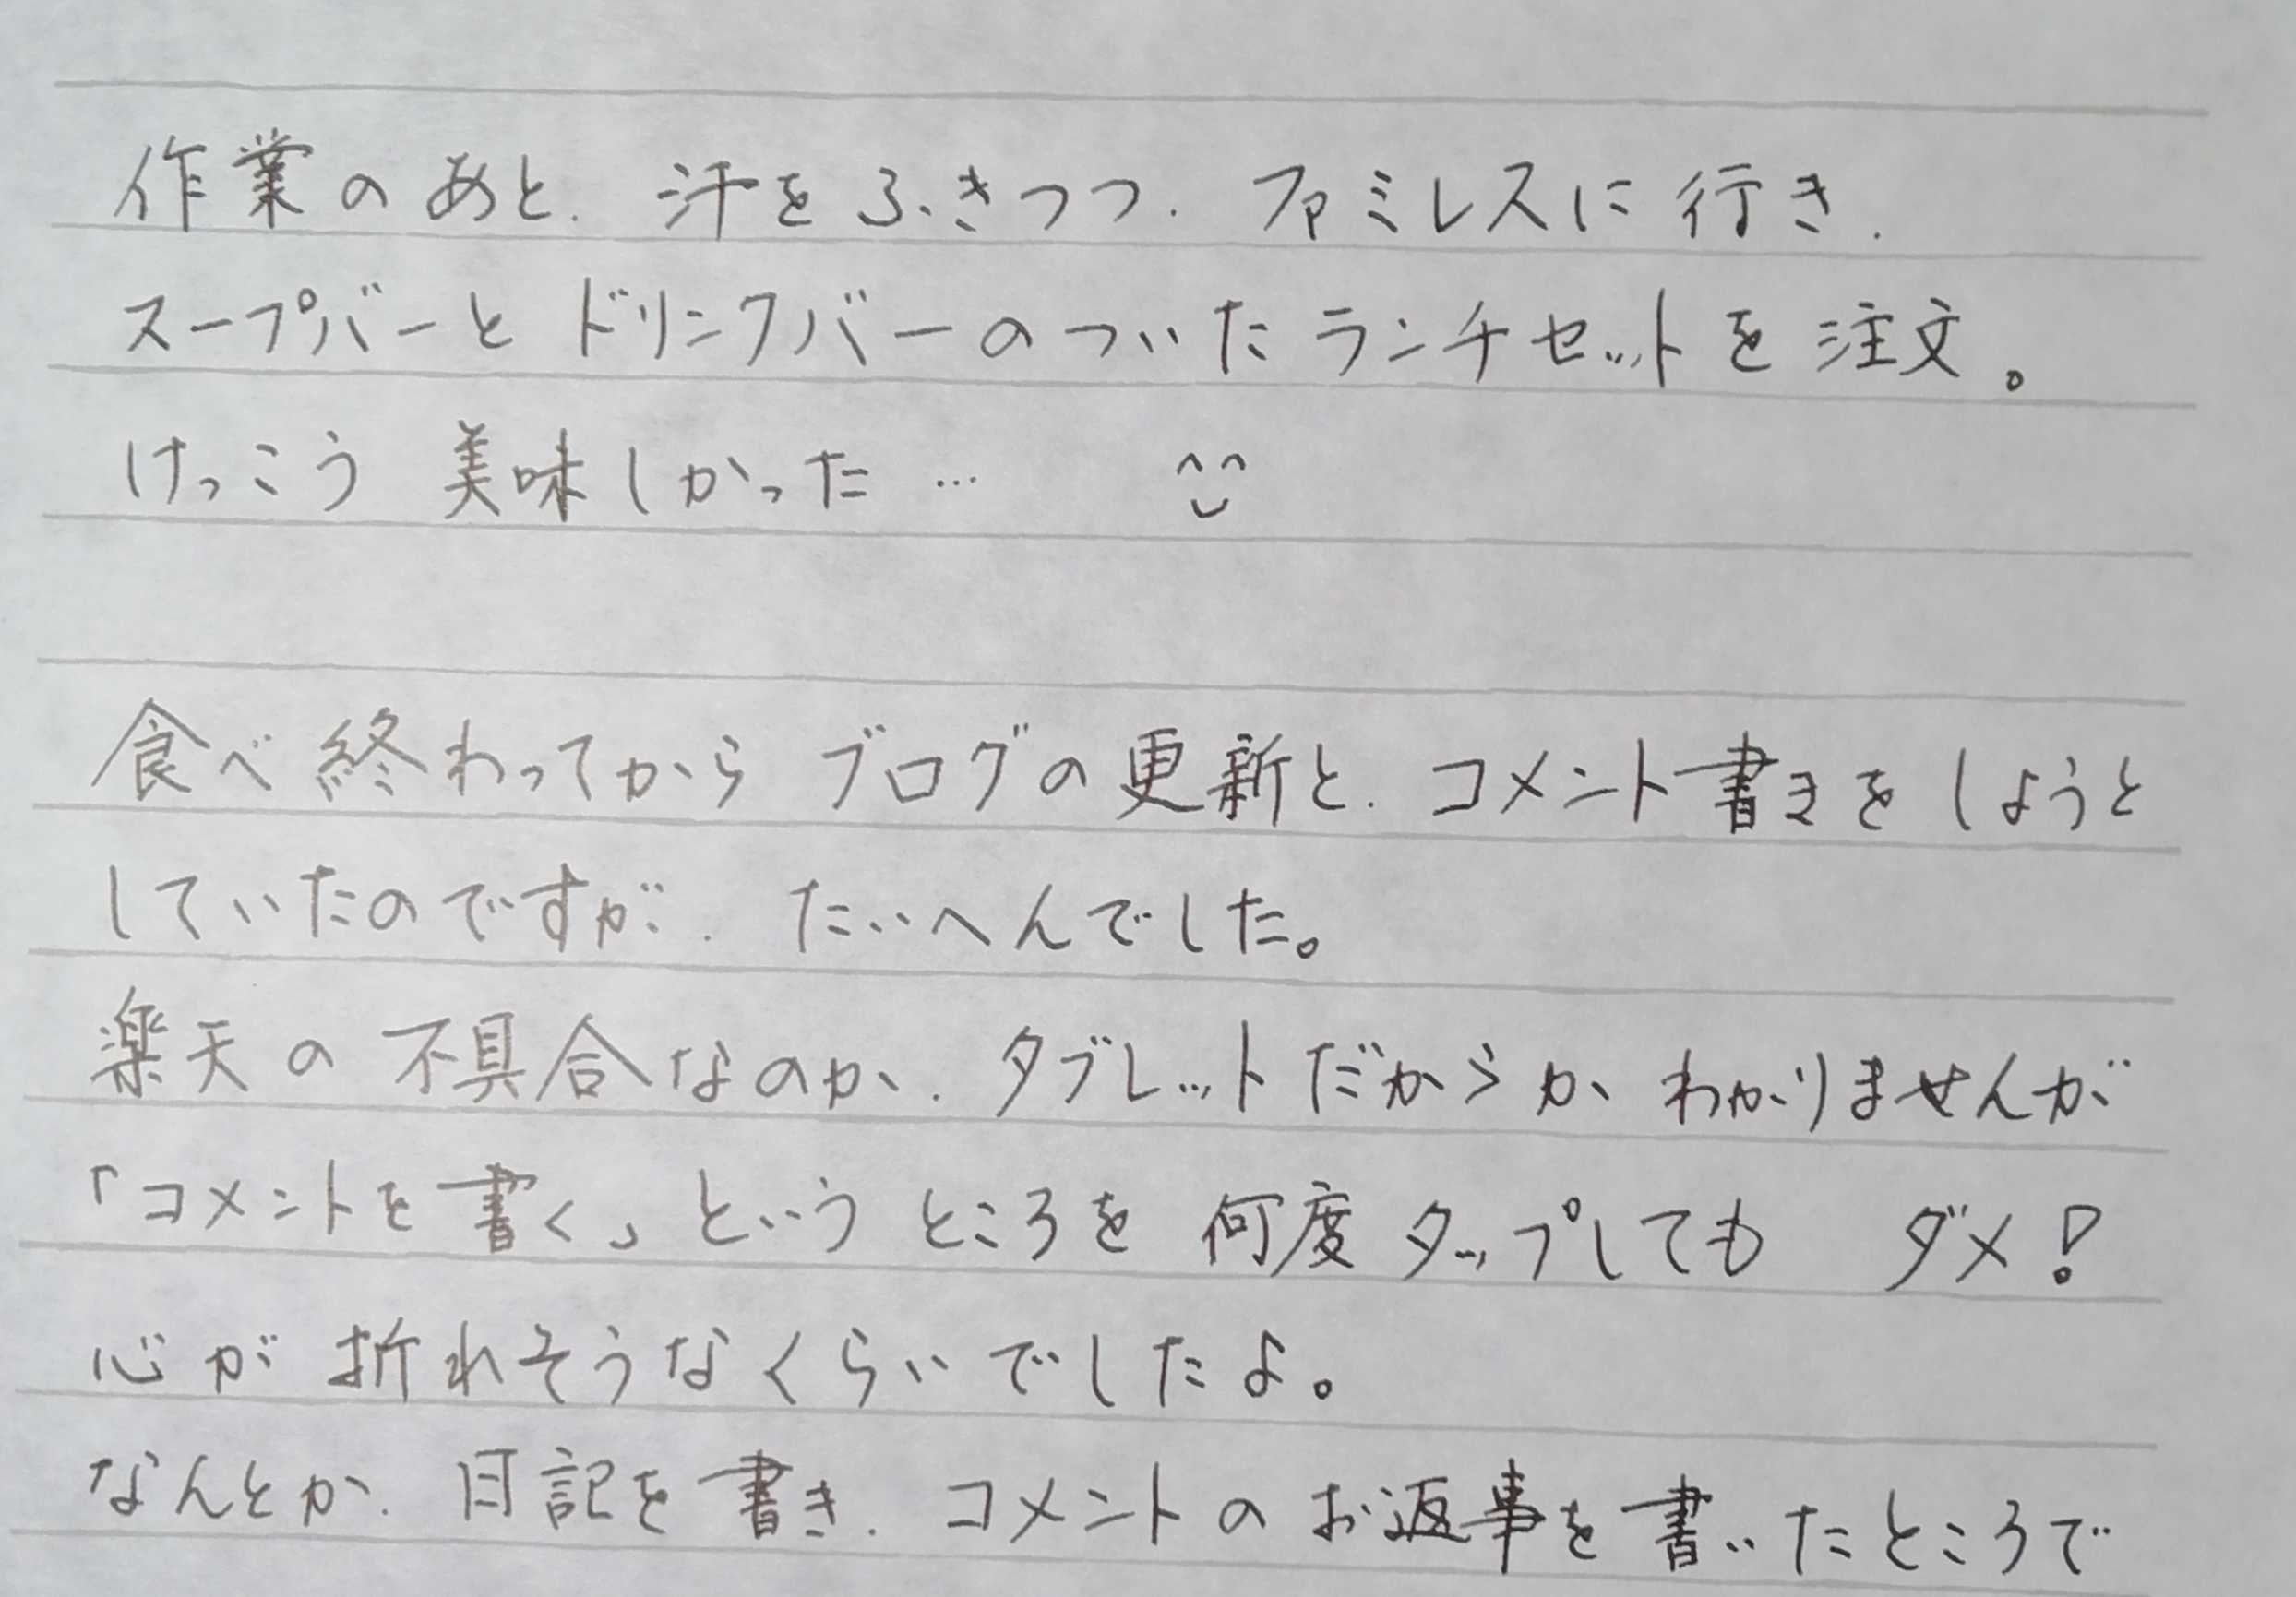 作業のあと、汗をふきつつ、ファミレスに行き、
スープバーとドリンクバーのついたランチセットを注文。
けっこう美味しかった…
食べ終わってからブログの更新と、コメント書きをしようと
していたのですが、たいへんでした。
楽天の不具合なのか、タブレットだからか、わかりませんが
「コメントを書く」というところを何度タップしても ダメ!
心が折れそうなくらいでしたよ。
なんとか、日記を書き、コメントのお返事を書いたところで